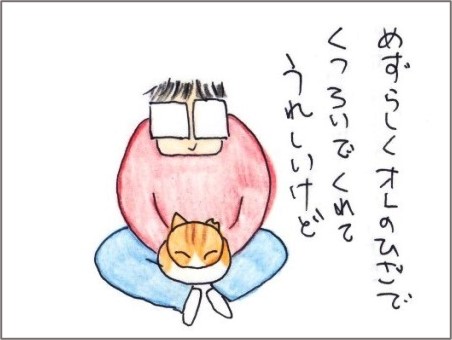 めずらしくオレのひざで
くつろいでくれて
うれしいけど